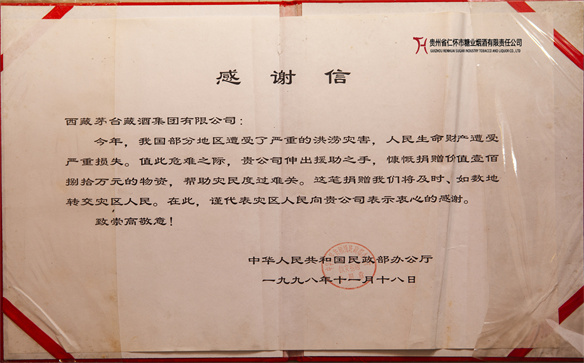 贵州省仁怀市糖业烟酒有限责任公司
GUIZHOU RENHUAI SUGAR INDUSTRY TOBACCO AND LIQUOR CO., LTD
感谢信
西藏茅台藏酒集团有限公司：
今年，我国部分地区遭受了严重的洪涝灾害，人民生命财产遭受
严重损失。值此危难之际，贵公司伸出援助之手，慷慨捐赠价值壹佰
捌拾万元的物资，帮助灾民度过难关。这笔捐赠我们将及时、如数地
转交灾区人民。在此，谨代表灾区人民向贵公司表示衷心的感谢。
致崇高敬意！
中华人民共和国民政部办公厅
一九九八年十一月十八日